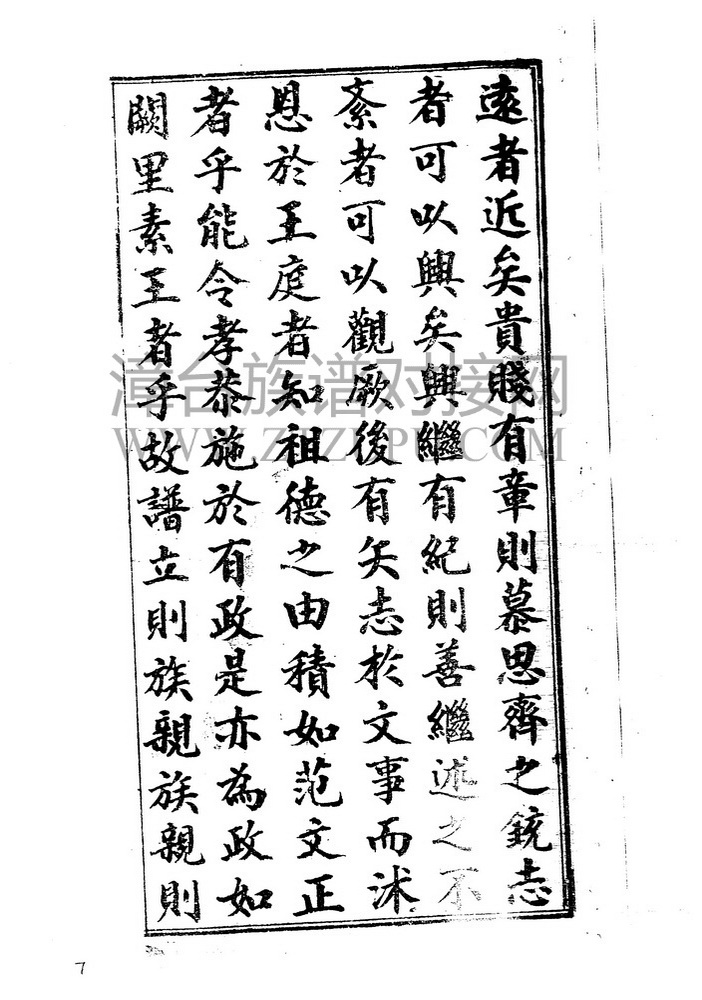 遠者近矣貴賤有章則慕思齊之銳志
者可以興矣興繼有紀則善繼述之不
紊者可以觀厥後有矣志於文事而沭
恩於王庭者知祖德之由積如范文正
者乎能令孝恭施於有政是亦為政如
闕里素王者乎故譜立則族親族親則
漳台族谱对接网
7